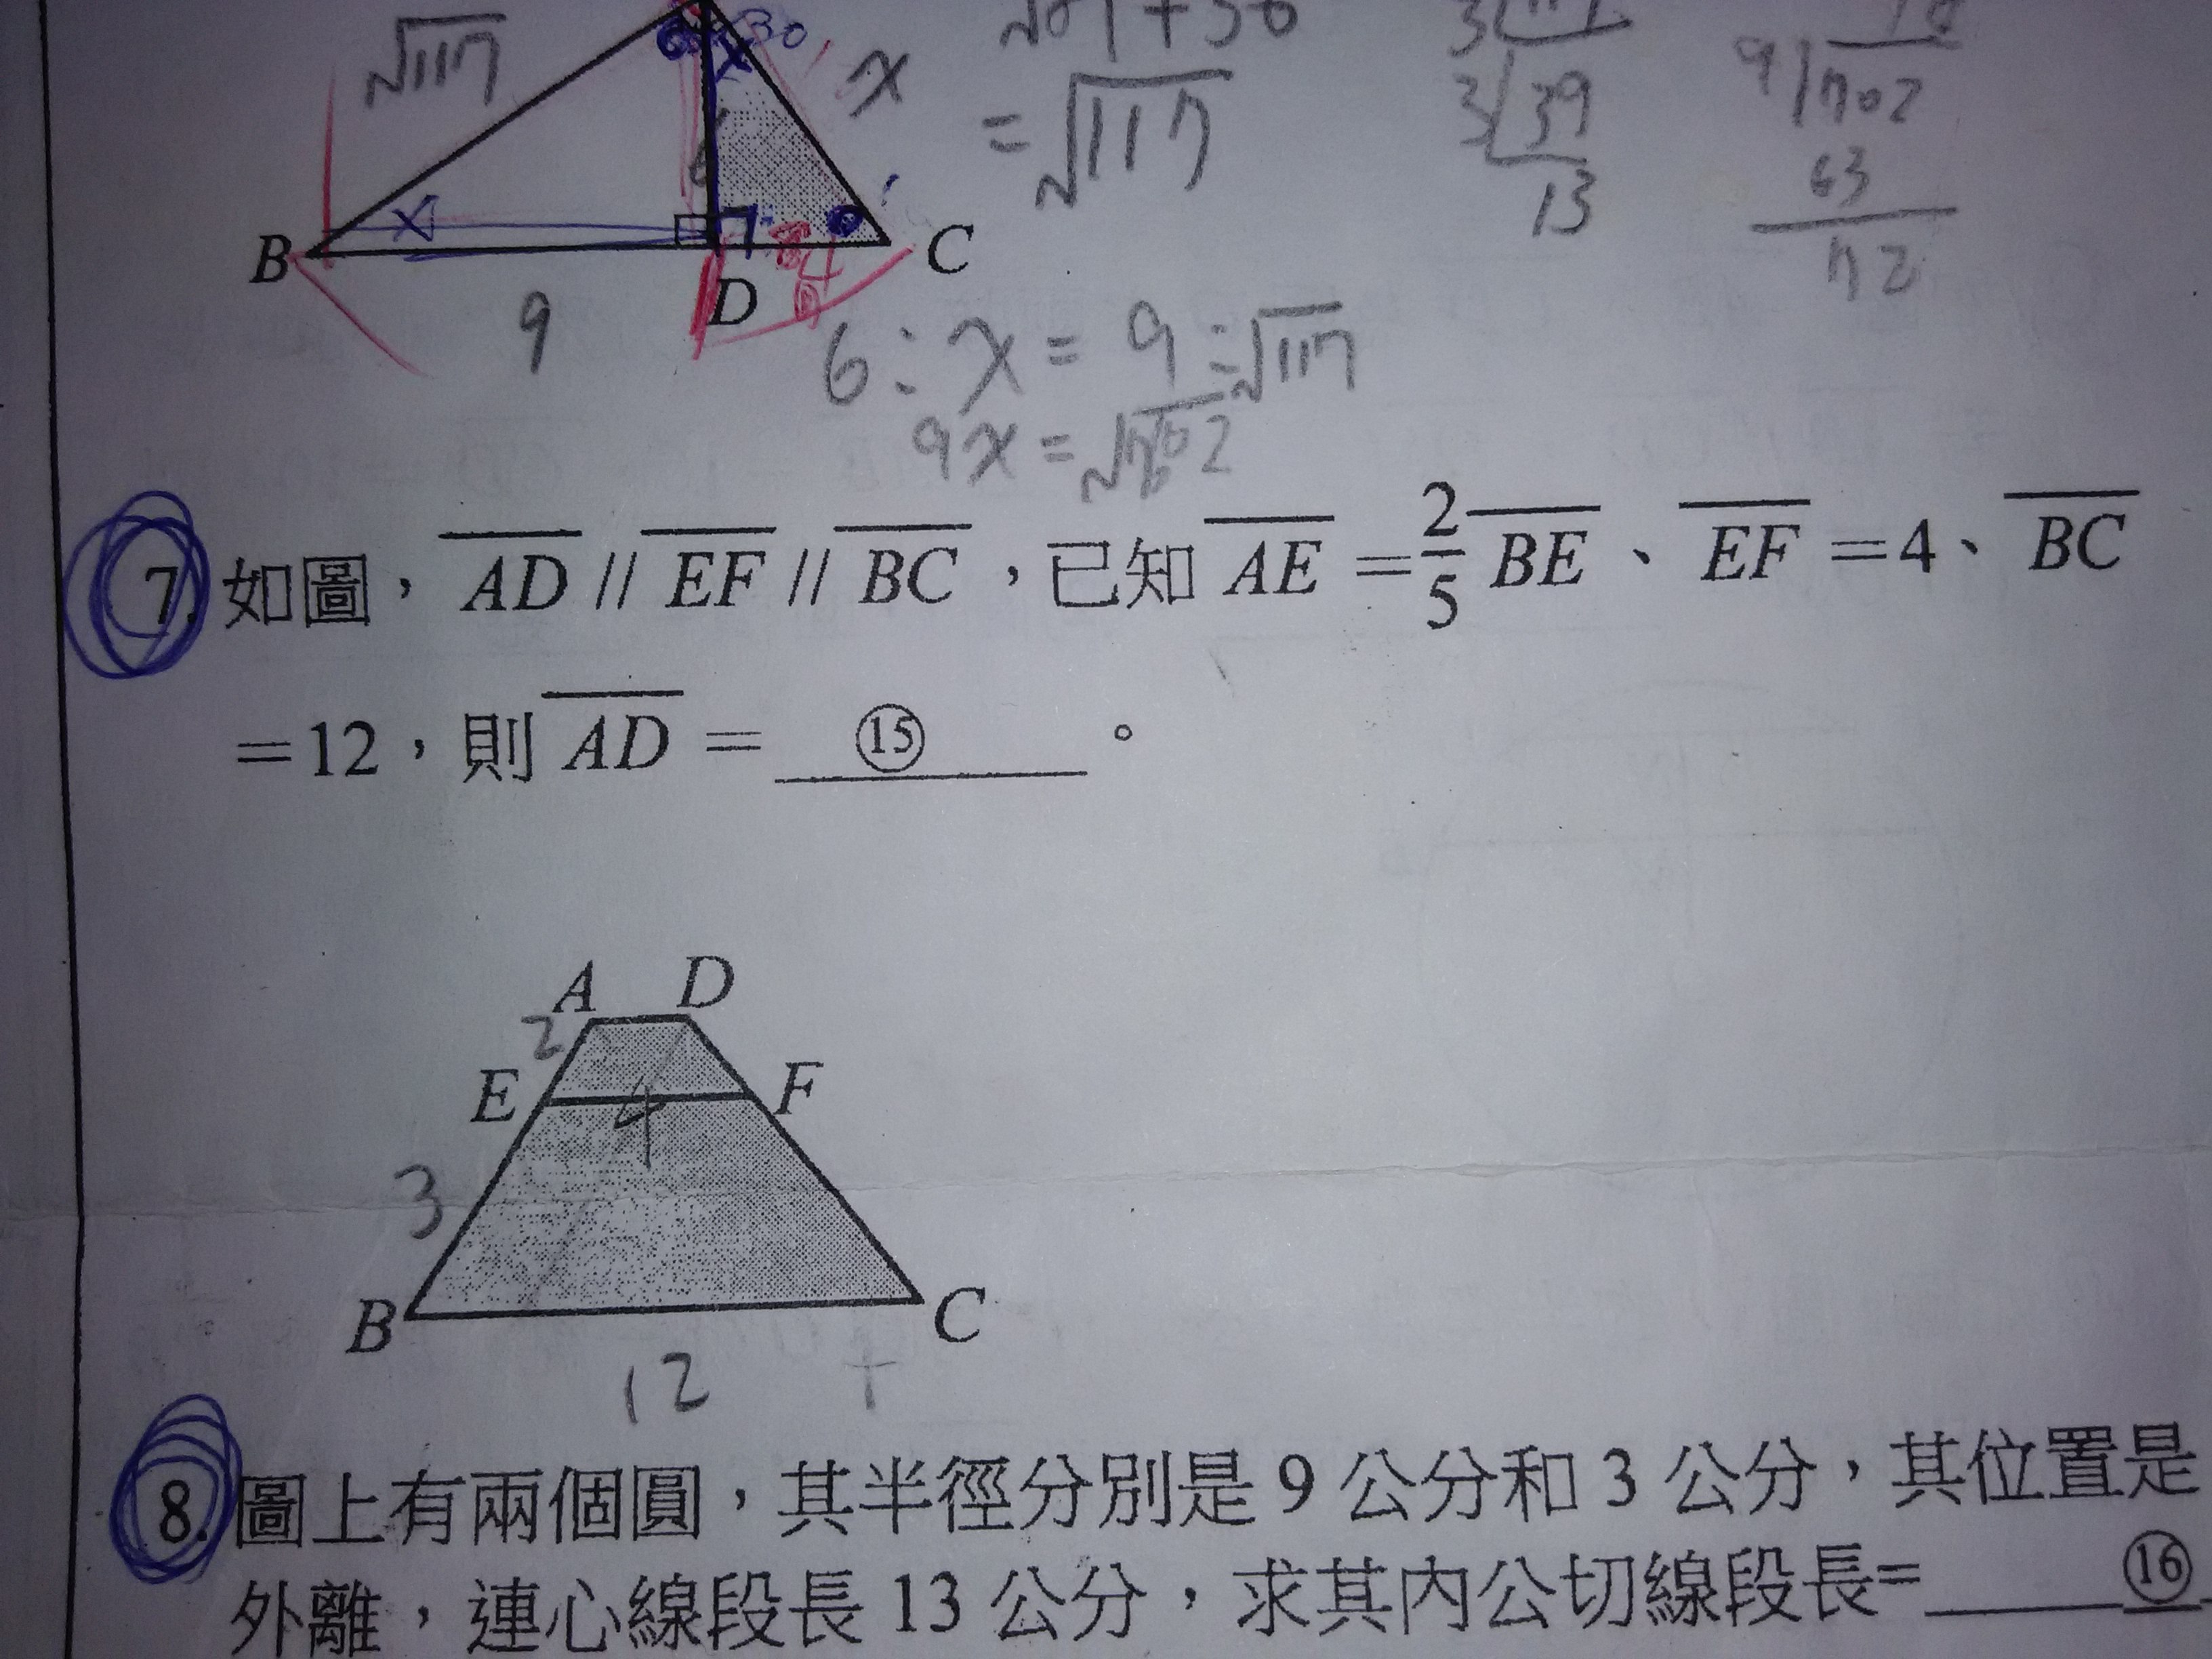 √117
30
x
= √117
3 39
13
9 702
63
72
x
B
D
C
9
6 : x = 9 : √117
9x = √702
7. 如圖，AD // EF // BC，已知 AE = 2/5 BE、EF = 4、BC
= 12，則 AD = ⑮ 。
A D
2
E 4 F
3
B C
12
8. 圖上有兩個圓，其半徑分別是 9 公分和 3 公分，其位置是
外離，連心線段長 13 公分，求其內公切線段長= ⑯